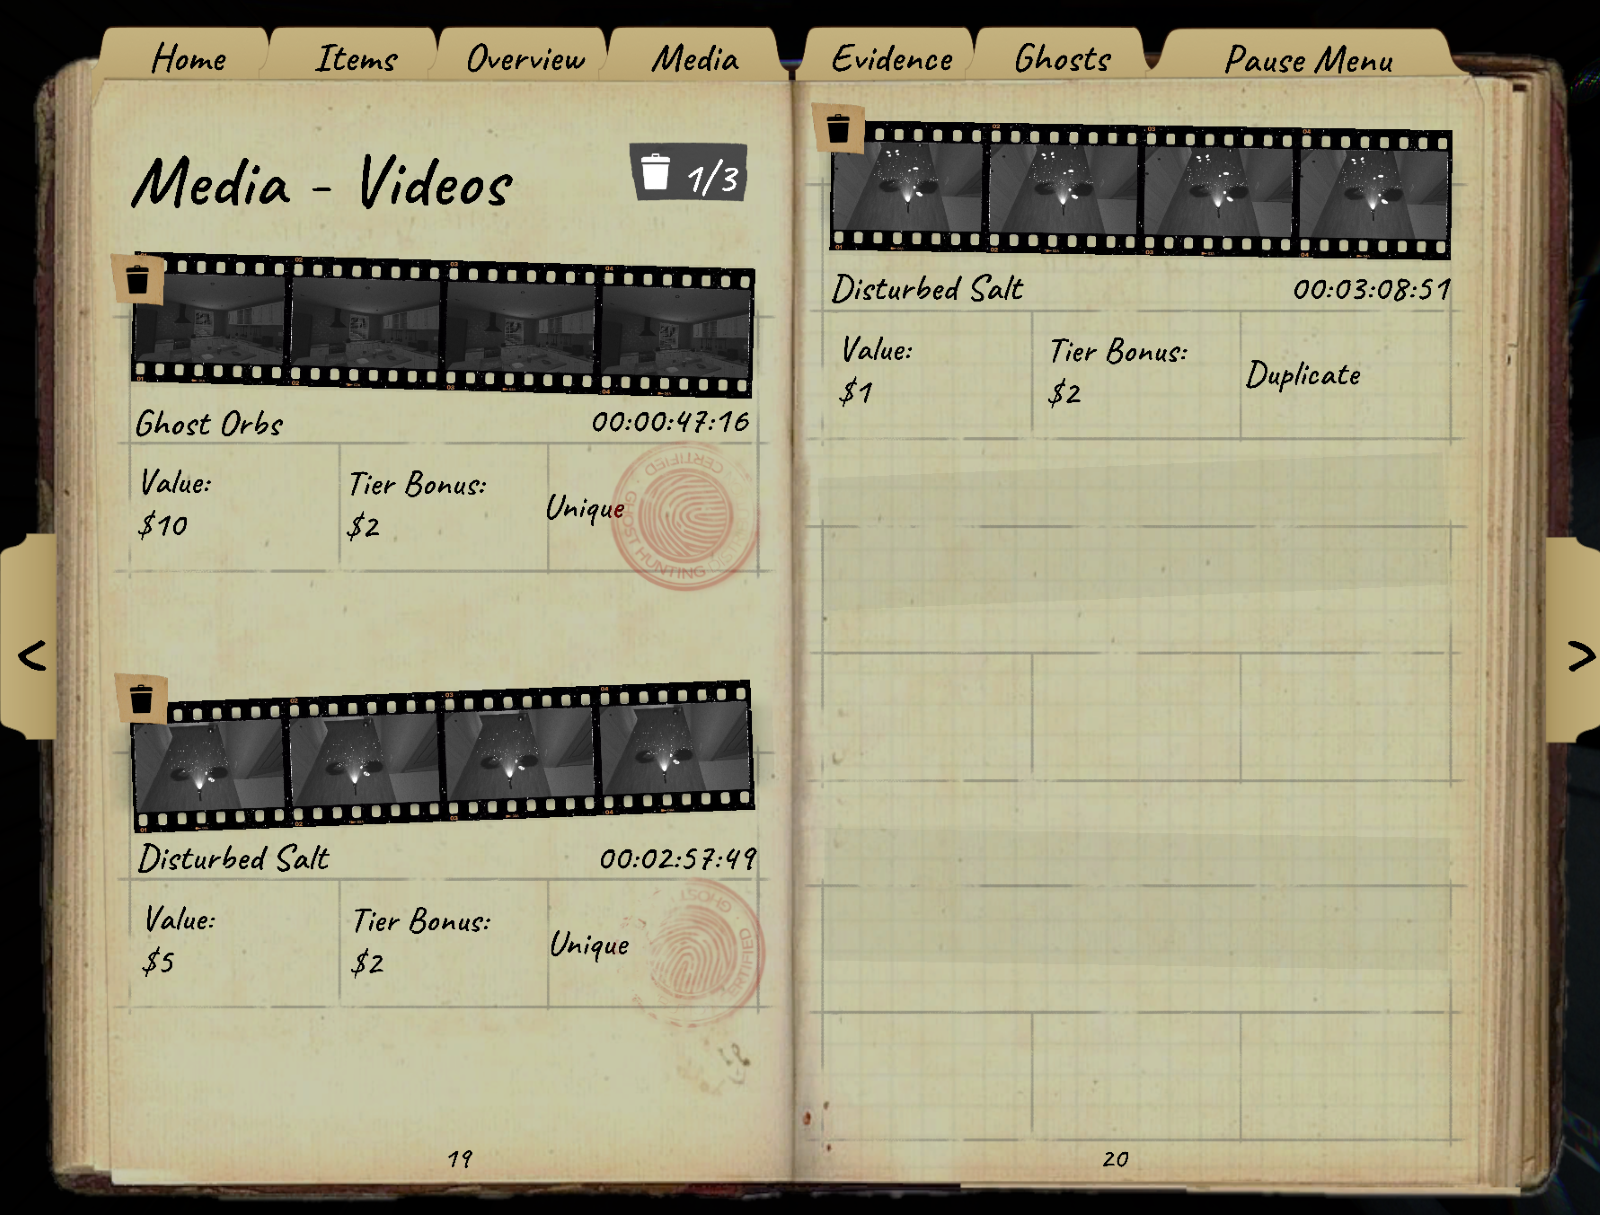 Home
Items
Overview
Media
Evidence
Ghosts
Pause Menu
Media - Videos
1/3
Ghost Orbs
00:00:47:16
Value:
$10
Tier Bonus:
$2
Unique
CERTIFIED
GHOST HUNTING
Disturbed Salt
00:02:57:49
Value:
$5
Tier Bonus:
$2
Unique
GHOST
CERTIFIED
19
Disturbed Salt
00:03:08:51
Value:
$1
Tier Bonus:
$2
Duplicate
20
<
>